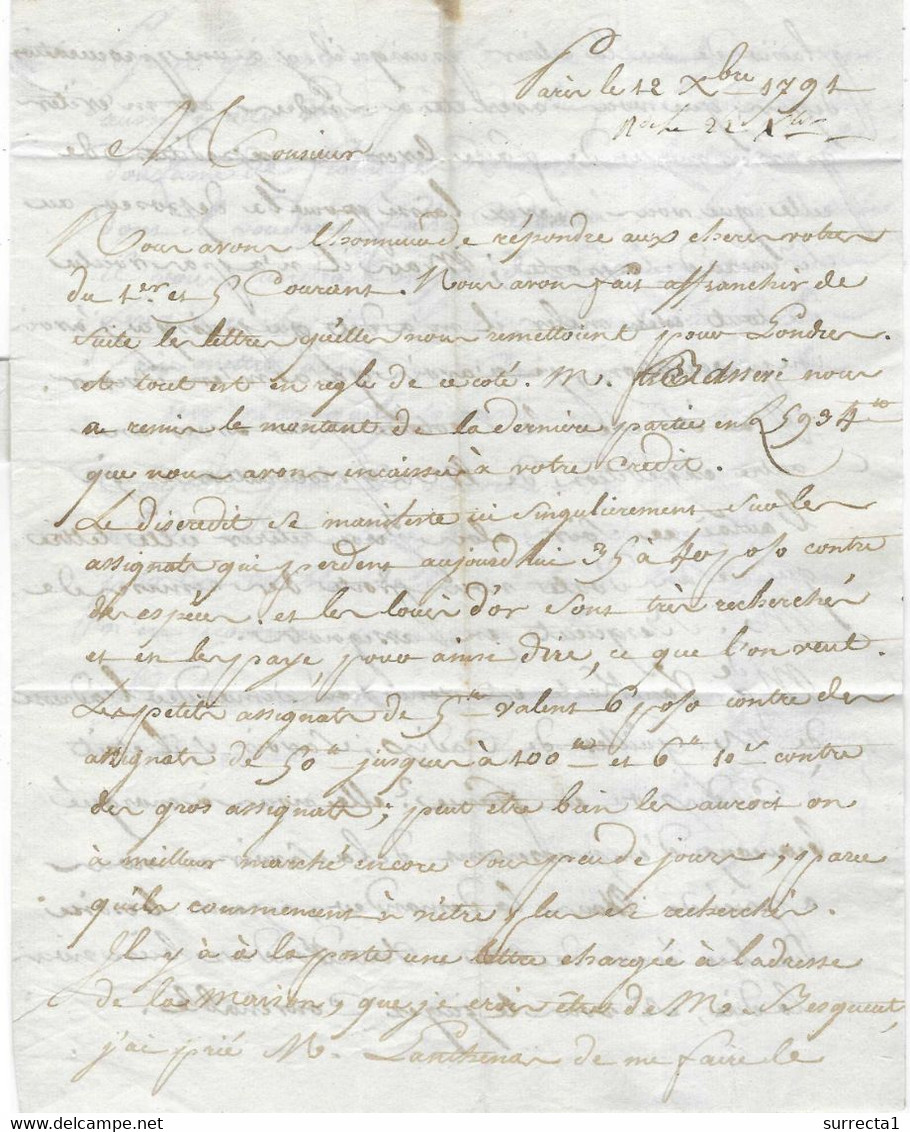 Paris le 12 Xbre 1791
22 Xbre
Monsieur
Nous avons l'honneur de répondre aux cheres votres
du 1er et 5 Courant. Nous avons fait affranchir de
suite les lettres qu'elles nous remettoient pour Londres.
et tout est en regle de ce coté. M. nous
a remis le montant de la derniere partie en £ 5934
que nous avons encaissé à votre Credit.
Le discredit se manifeste ici singulierement sur les
assignats qui perdent aujourdhui 35 à 40 p o/o contre
des especes. et les louis d'or sont très recherchés
et on les paye, pour ainsi dire, ce que l'on veut.
Les petits assignats de 5tt valent 6 p o/o contre des
assignats de 50tt jusques à 100tt et 6tt 10s contre
des gros assignats; peut être bien les auroit on
à meilleur marché encore sous peu de jours, parce
qu'ils commencent à n'être plus si recherchés.
Il y à à la poste une lettre chargée à l'adresse
de la Maison, que je crois être de M.
j'ai prié M. Lanthenas de me faire le
surrecta1